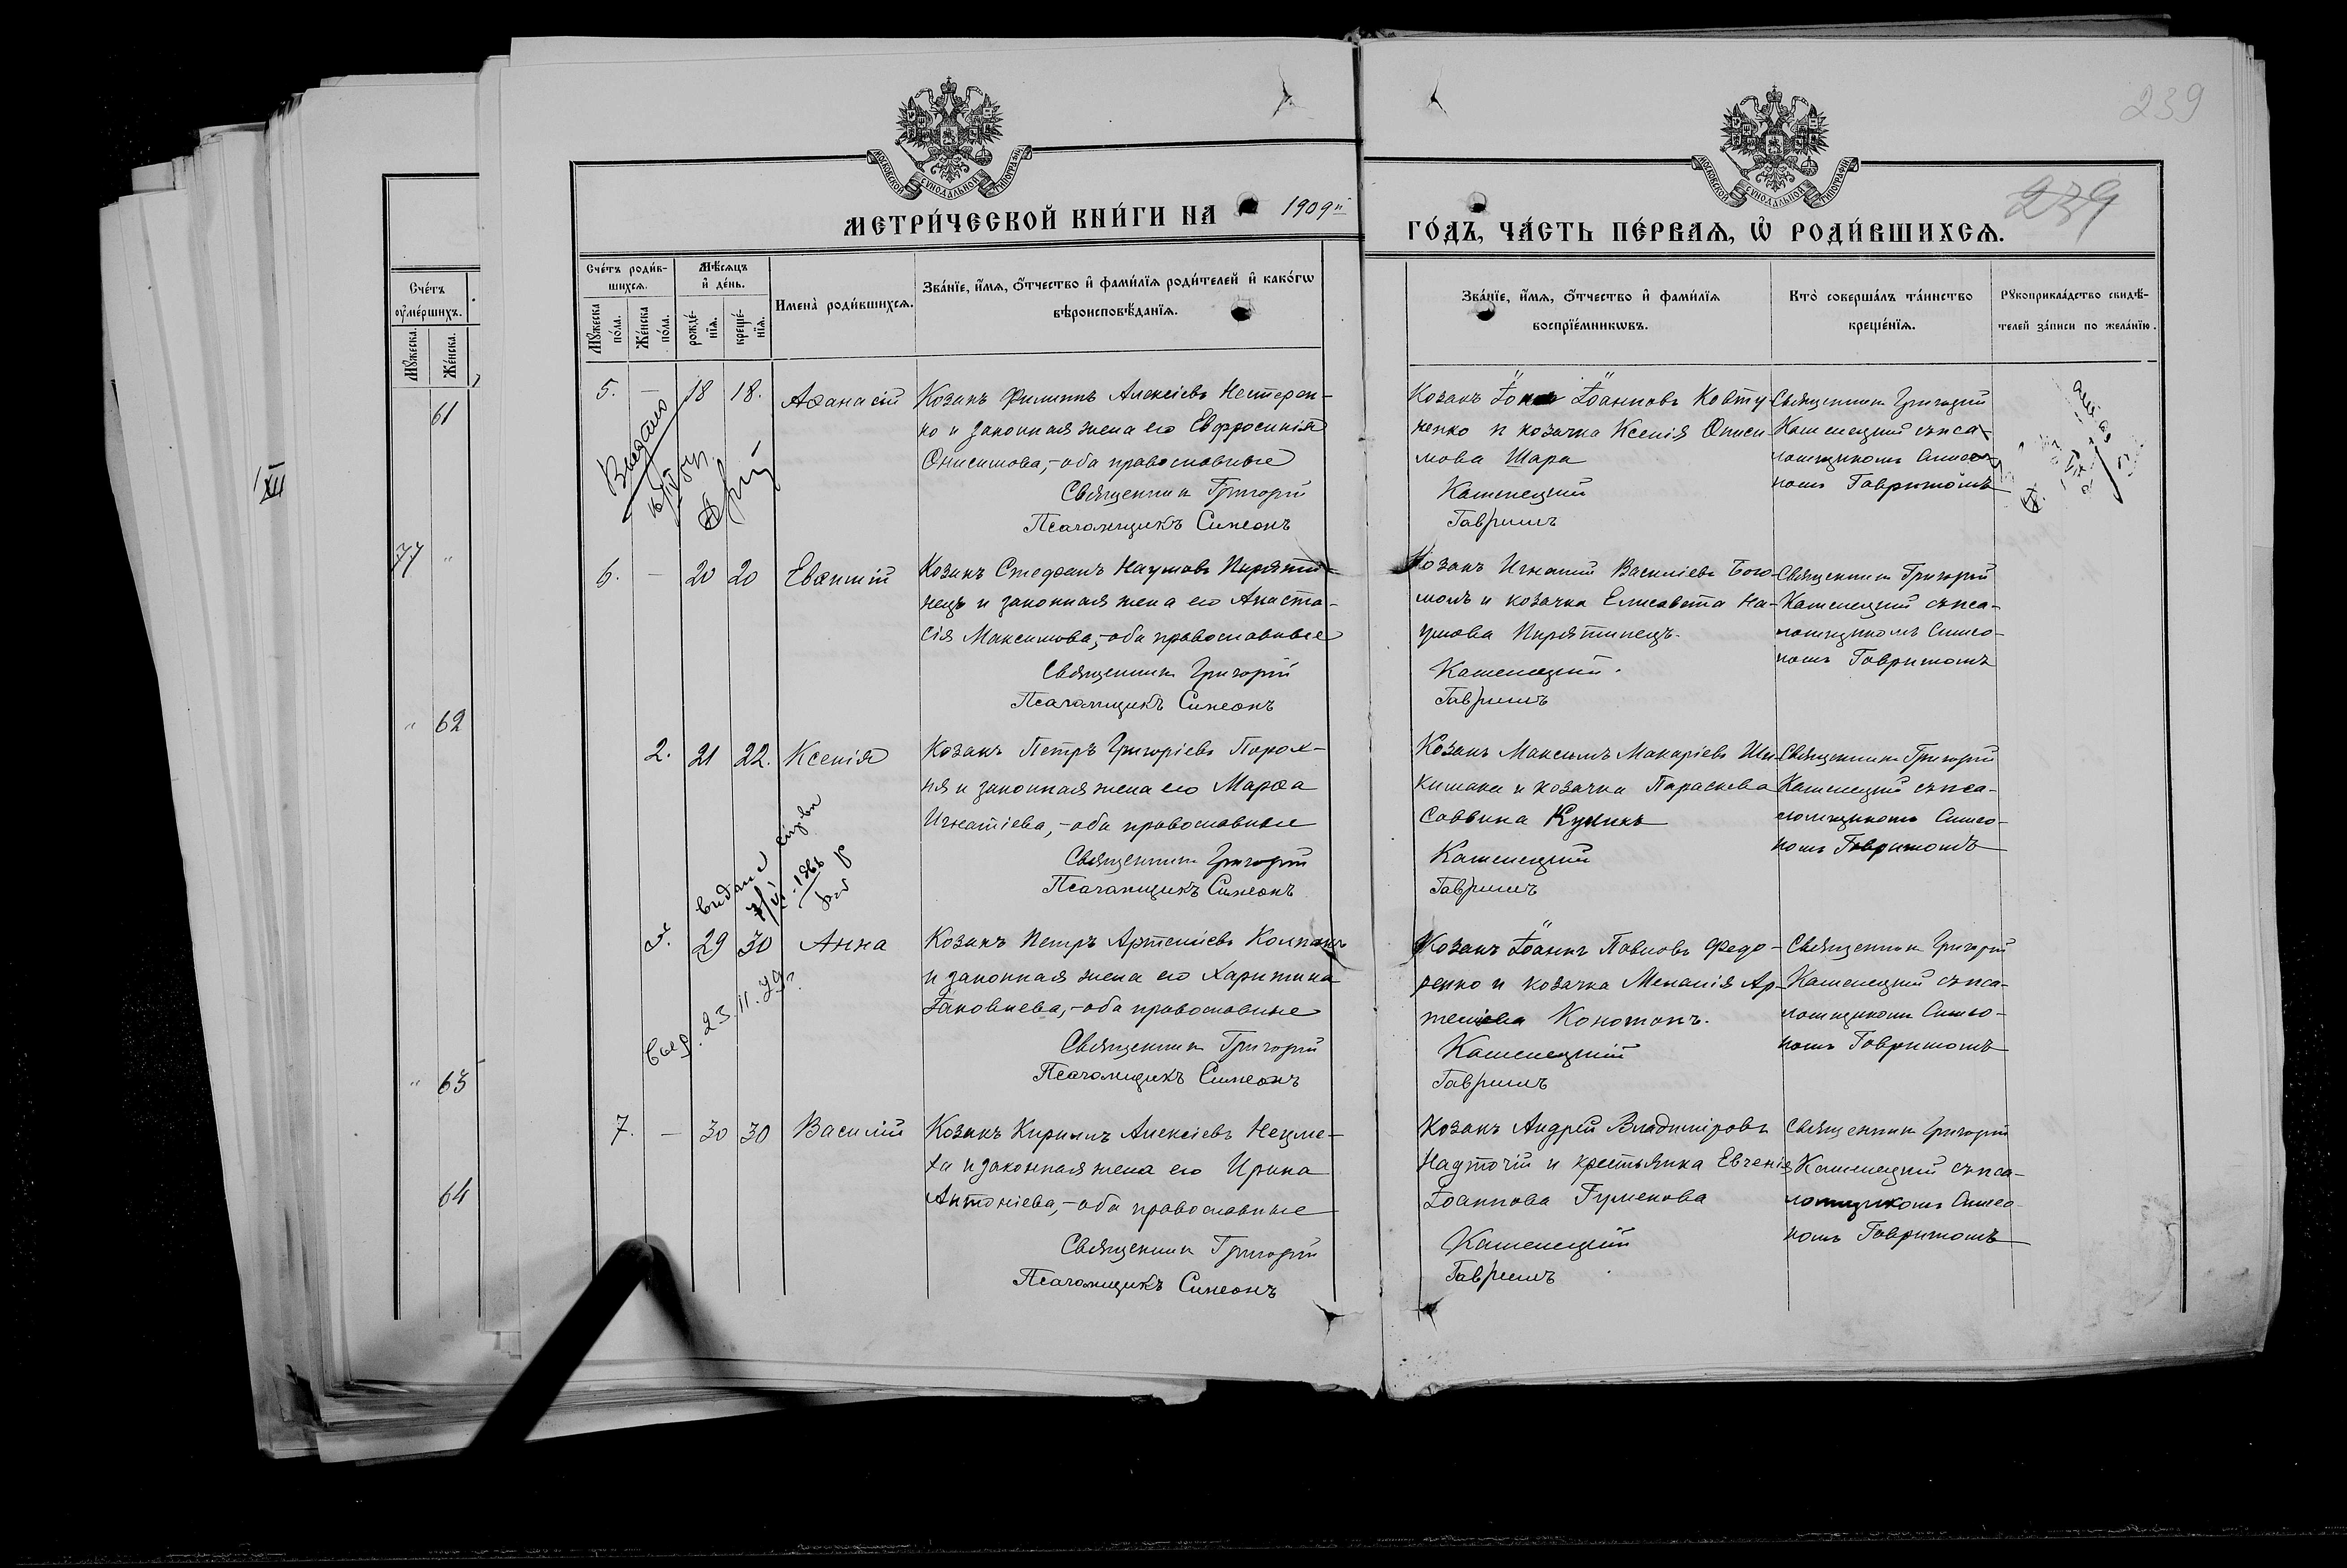 239
239
МОСКОВСКОЙ СѴНОДАЛЬНОЙ ТИПОГРАФІИ
МОСКОВСКОЙ СѴНОДАЛЬНОЙ ТИПОГРАФІИ
МЕТРИ́ЧЕСКОЙ КНИ́ГИ НА 1909й
ГО́ДЪ, ЧА́СТЬ ПЕ́РВАЯ, Ѡ РОДИ́ВШИХСЯ.
Сче́тъ оумершихъ.
Мꙋжеска.
Же́нска.
61
XII
77 "
" 62
" 63
64
Сче́тъ роди́в-
шихся.
Мꙋжеска по́ла.
Же́нска по́ла.
Мѣ́сяцъ
и де́нь.
рожде́нїя.
креще́нїя.
Имена̀ роди́вшихся.
Зва́нїе, и́мя, о́тчество и фами́лїя роди́телей и како́гѡ
вѣроисповѣ́данїя.
Зва́нїе, и́мя, о́тчество и фами́лїя
воспрїе́мникѡвъ.
Кто̀ соверша́лъ та́инство
креще́нїя.
Рꙋкоприкла́дство свидѣ́-
телей за́писи по жела́нїю.
5. — 18 18. Аѳанасій
Козакъ Филиппъ Алексіевъ Нестерен-
ко и законная жена его Евфросинія
Онисимова,- оба православные
Священникъ Григорій
Псаломщикъ Симеонъ
Козакъ Іоаннъ Іоанновъ Ковту-
ненко и козачка Ксенія Ониси-
мова Шара
Каменецкий
Гавришъ
Священникъ Григорий
Каменецкий съ пса-
ломщикомъ Симео-
номъ Гавришомъ
6. — 20 20 Евѳимій
Козакъ Стефанъ Наумовъ Пирятин-
нецъ и законная жена его Анаста-
сія Максимова,- оба православные
Священникъ Григорій
Псаломщикъ Симеонъ
Козакъ Игнатий Василіевъ Бого-
молъ и козачка Елисавета На-
умова Пирятинецъ.
Каменецкий.
Гавришъ
Священникъ Григорій
Каменецкий съ пса-
ломщикомъ Симео-
номъ Гавришомъ
2. 21 22. Ксенія
Козакъ Петръ Григоріевъ Порох-
ня и законная жена его Марѳа
Игнатіева,- оба православные
Священникъ Григорій
Псаломщикъ Симеонъ
Козакъ Максимъ Макаріевъ
и козачка Параскева
Саввина Куликъ
Каменецкий
Гавришъ
Священникъ Григорій
Каменецкий съ пса-
ломщикомъ Симео-
номъ Гавришомъ
3. 29 30 Анна
23.11.79
Козакъ Петръ Артеміевъ
и законная жена его Харитина
Іаковлева,- оба православные
Священникъ Григорій
Псаломщикъ Симеонъ
Козакъ Іоаннъ Павловъ Федо-
ренко и козачка Меланія Ар-
теміева Конотопъ.
Каменецкій
Гавришъ
Священникъ Григорій
Каменецкий съ пса-
ломщикомъ Симео-
номъ Гавришомъ
7. — 30 30 Василій
Козакъ Кириллъ Алексіевъ
и законная жена его Ирина
Антоніева,- оба православные
Священникъ Григорій
Псаломщикъ Симеонъ
Козакъ Андрей Владиміровъ
Надточій и крестьянка Евгенія
Іоаннова Гуменова
Каменецкий
Гавришъ
Священникъ Григорій
Каменецкий съ пса-
ломщикомъ Симео-
номъ Гавришомъ